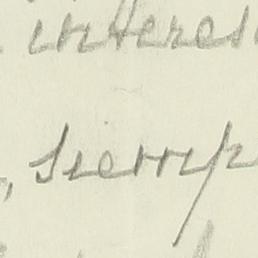 interes
, siemp